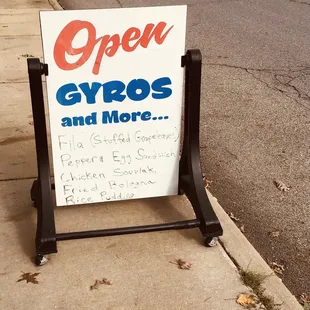 Open
GYROS
and More...
Fila (Stuffed Grapeleaves)
Pepper & Egg Sandwich
Chicken Souvlaki
Fried Bologna
Rice Pudding